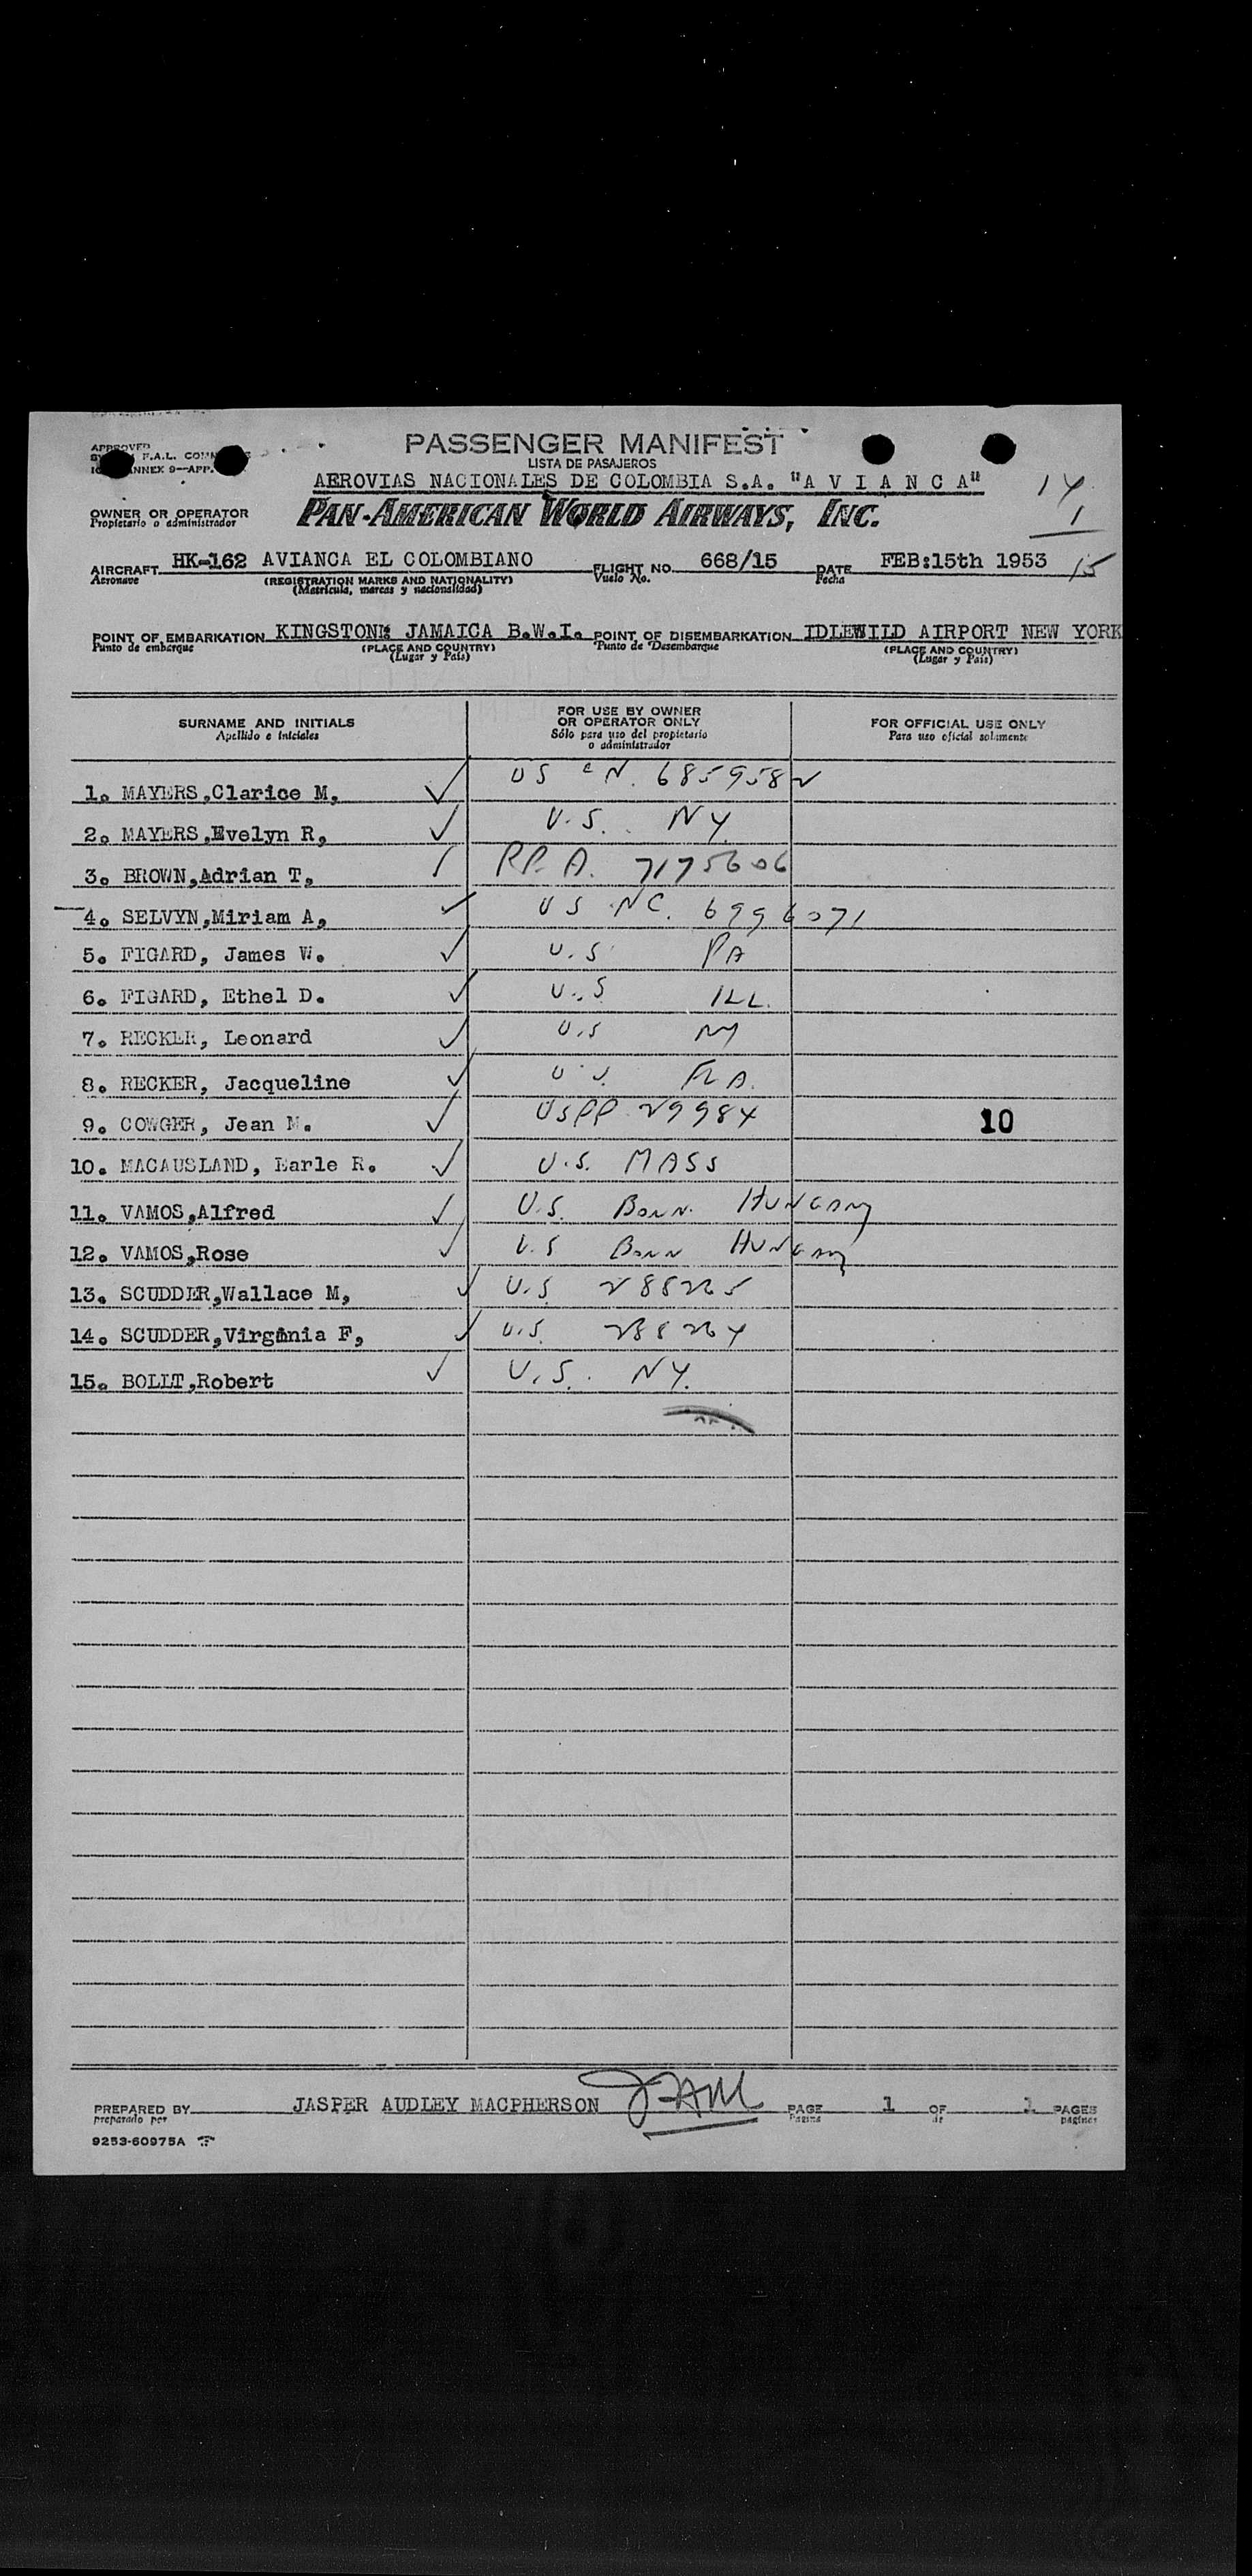 PASSENGER MANIFEST
LISTA DE PASAJEROS
APPROVED
F.A.L. COMM
ANNEX 9—APP.
AEROVIAS NACIONALES DE COLOMBIA S.A. "A V I A N C A"
14
1
15
OWNER OR OPERATOR
Propietario o administrador
PAN-AMERICAN WORLD AIRWAYS, INC.
AIRCRAFT HK-162 AVIANCA EL COLOMBIANO FLIGHT NO. 668/15 DATE FEB:15th 1953
Aeronave (REGISTRATION MARKS AND NATIONALITY) Vuelo No. Fecha
(Matrícula, marcas y nacionalidad)
POINT OF EMBARKATION KINGSTON: JAMAICA B.W.I. POINT OF DISEMBARKATION IDLEWILD AIRPORT NEW YORK
Punto de embarque (PLACE AND COUNTRY) Punto de Desembarque (PLACE AND COUNTRY)
(Lugar y País) (Lugar y País)
SURNAME AND INITIALS
Apellido e iniciales
FOR USE BY OWNER
OR OPERATOR ONLY
Sólo para uso del propietario
o administrador
FOR OFFICIAL USE ONLY
Para uso oficial solamente
1. MAYERS,Clarice M, ✓ US CN. 6859582
2. MAYERS,Evelyn R, ✓ U.S. NY.
3. BROWN,Adrian T, / PP. A. 7175606
4. SELVYN,Miriam A, ✓ US NC. 6996071
5. FIGARD, James W. ✓ U.S PA
6. FIGARD, Ethel D. ✓ U.S ILL.
7. RECKER, Leonard ✓ U.S NY
8. RECKER, Jacqueline ✓ U.S. FLA.
9. COWGER, Jean M. ✓ USPP 29984 10
10. MACAUSLAND, Earle R. ✓ U.S. MASS
11. VAMOS,Alfred ✓ U.S. BORN. HUNGARY
12. VAMOS,Rose ✓ U.S BORN HUNGARY
13. SCUDDER,Wallace M, ✓ U.S 288265
14. SCUDDER,Virginia F, ✓ U.S. 288264
15. BOLLT,Robert ✓ U.S. NY.
PREPARED BY JASPER AUDLEY MACPHERSON JAM PAGE 1 OF 1 PAGES
preparado por Pagina de paginas
9253-60975A